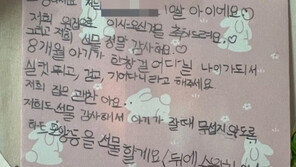 10살 아이에요~
저희 위층으로 이사오신걸 축하드려요♡
그리고 저희 선물 정말 감사해요♡
8개월 아기가 한창 걸어다닐 나이가 되서
실컷 뛰고, 걷고, 기어다니라고 해주세요
저희 집은 괜찮아요.
저희도 선물 감사해서 아기가 잘때 무섭지 않도록
하는 무드등을 선물할게요